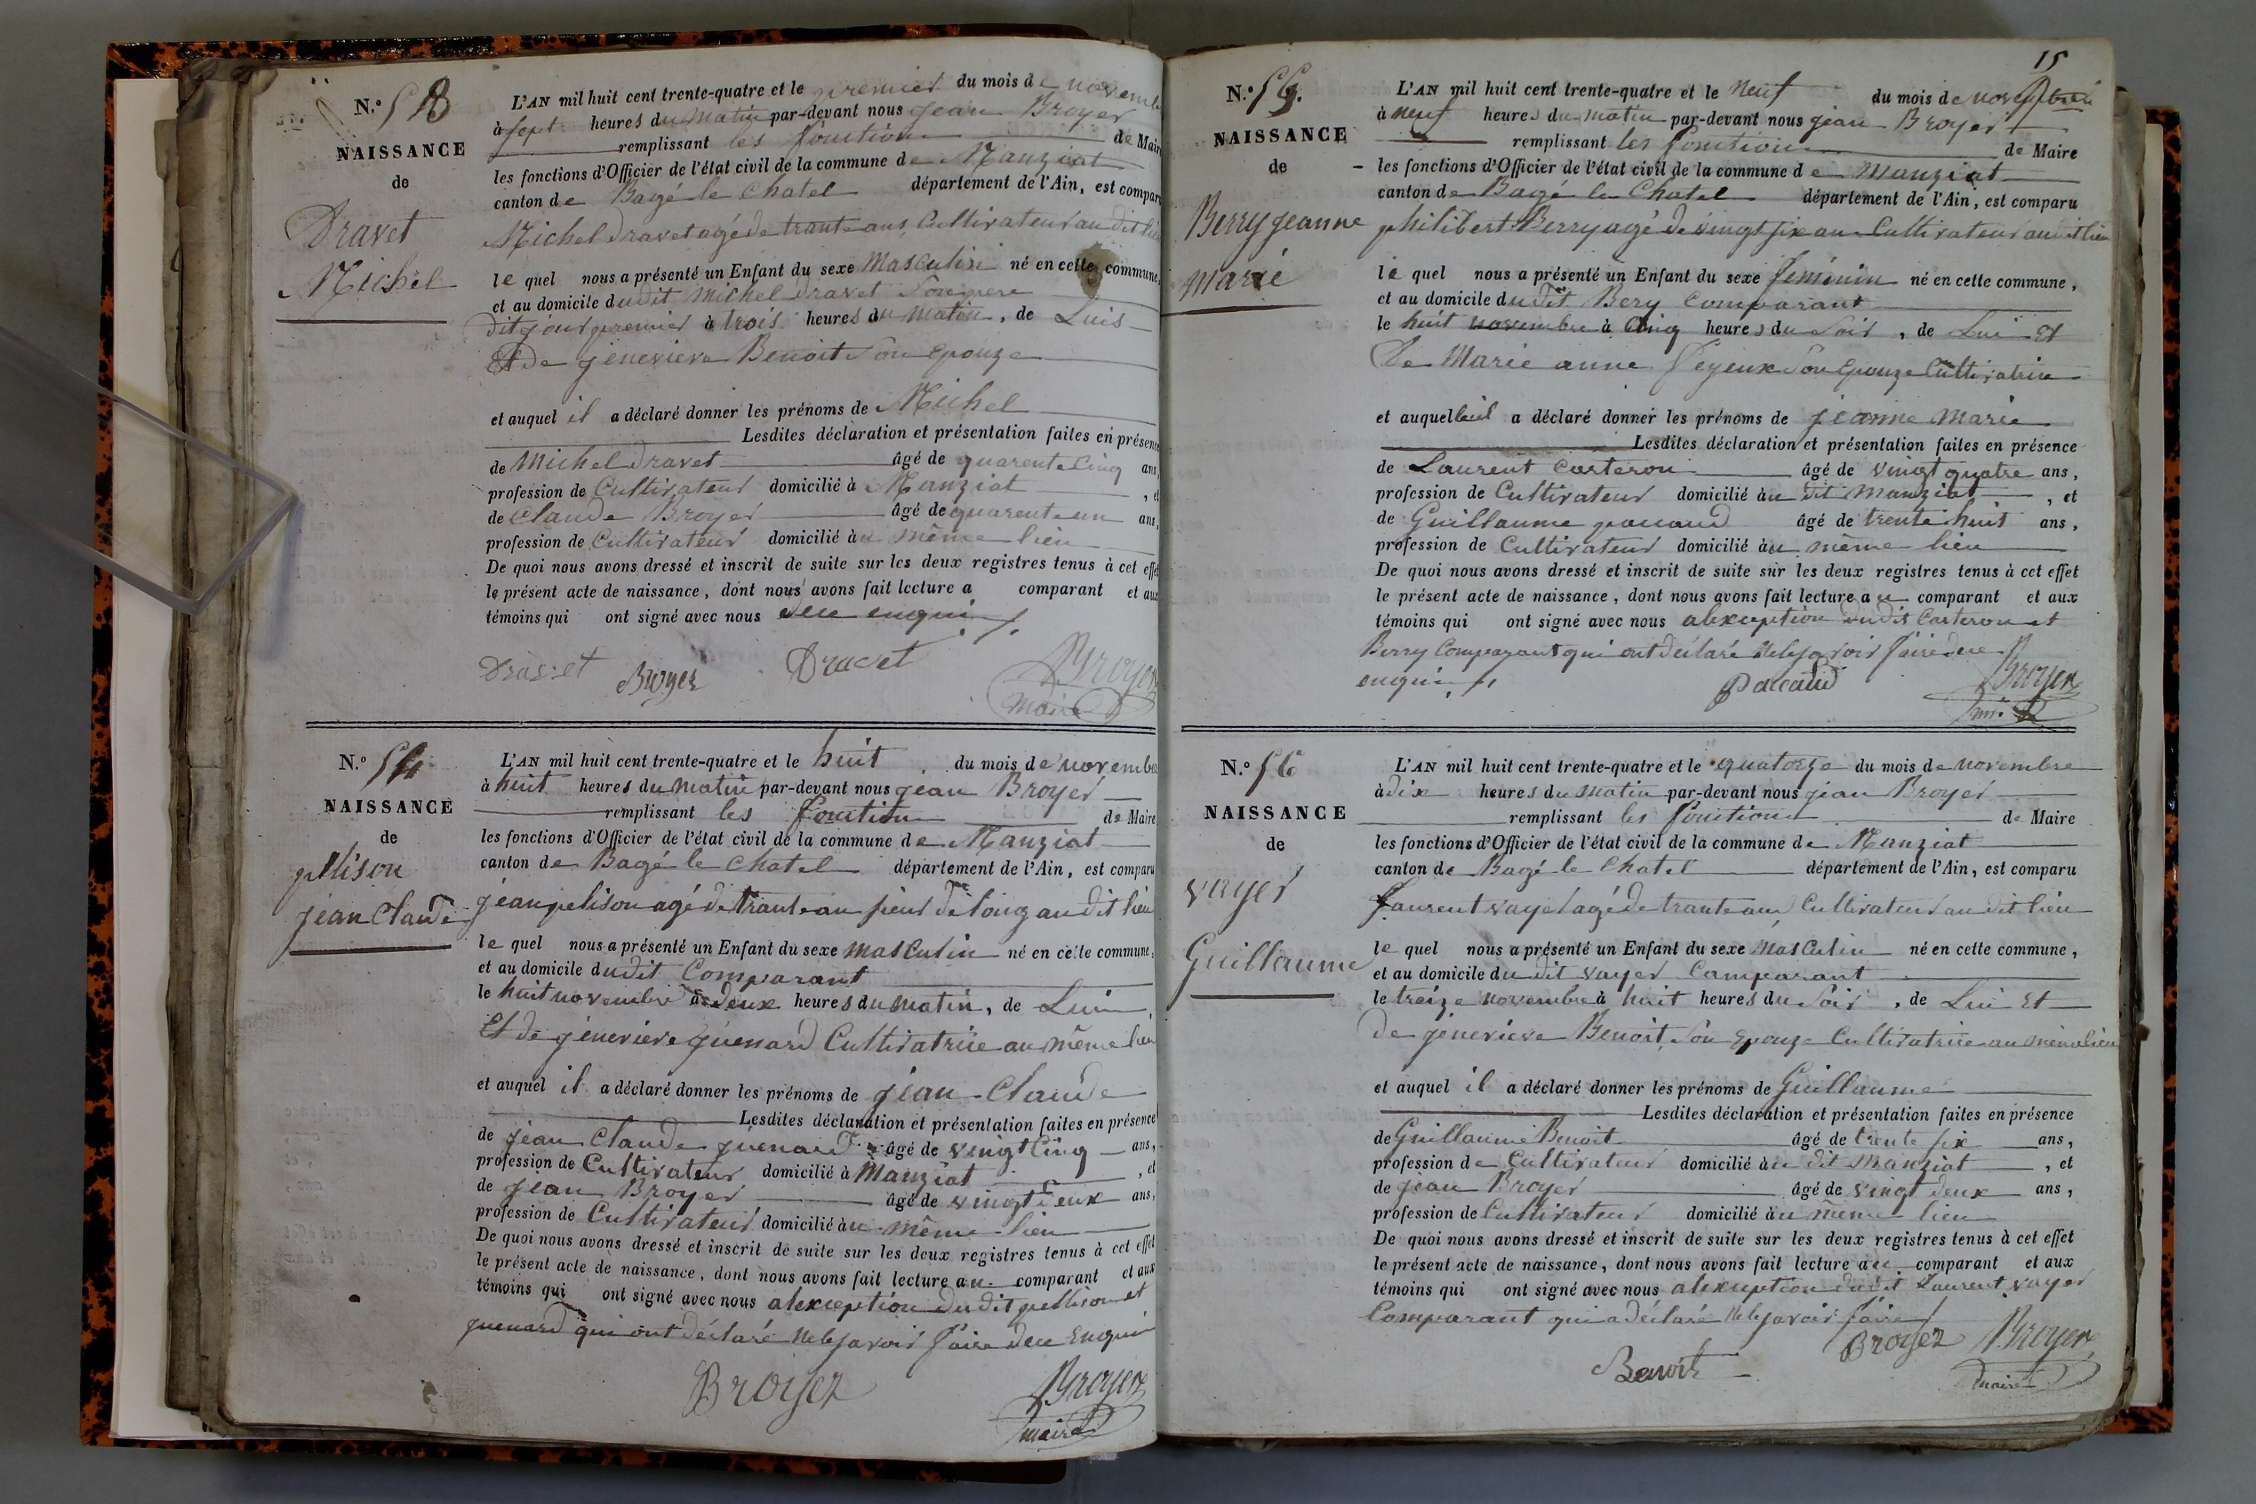 N.o 53
NAISSANCE
de
Dravet
Michel
L'AN mil huit cent trente-quatre et le premier du mois de novembre
à sept heures du matin par-devant nous jean Broyer
remplissant les fonction de Maire
les fonctions d'Officier de l'état civil de la commune de Manziat
canton de Bagé le Chatel département de l'Ain, est comparu
Michel Dravet agé de trante ans Cultivateur au dit lieu
le quel nous a présenté un Enfant du sexe Masculin né en cette commune,
et au domicile du dit Michel Dravet Son pere
dit jour premier à trois heures du matin, de Luis
Et de jenevieve Benoit Son Epouze
et auquel il a déclaré donner les prénoms de Michel
Lesdites déclaration et présentation faites en présence
de Michel Dravet âgé de quarente Cinq ans,
profession de Cultivateur domicilié à Manziat, et
de Claude Broyer âgé de quarente un ans,
profession de Cultivateur domicilié au même lieu
De quoi nous avons dressé et inscrit de suite sur les deux registres tenus à cet effet
le présent acte de naissance, dont nous avons fait lecture a comparant et aux
témoins qui ont signé avec nous dece enquis
Dravet Broyer Dravet Broyer
Maire
N.o 54
NAISSANCE
de
pellison
jean Claude
L'AN mil huit cent trente-quatre et le huit du mois de novembre
à huit heures du matin par-devant nous jean Broyer
remplissant les fonction de Maire
les fonctions d'Officier de l'état civil de la commune de Manziat
canton de Bagé le Chatel département de l'Ain, est comparu
jean pelison agé de trante an sieur de long au dit lieu
le quel nous a présenté un Enfant du sexe masculin né en cette commune,
et au domicile du dit Comparant
le huit novembre à deux heures du matin, de Lui
Et de jenevieve guenard Cultivatrice au même lieu
et auquel il a déclaré donner les prénoms de jean - Claude
Lesdites déclaration et présentation faites en présence
de jean Claude guenard âgé de vingt Cinq ans,
profession de Cultivateur domicilié à Manziat, et
de jean Broyer âgé de vingt deux ans,
profession de Cultivateur domicilié au même lieu
De quoi nous avons dressé et inscrit de suite sur les deux registres tenus à cet effet
le présent acte de naissance, dont nous avons fait lecture au comparant et aux
témoins qui ont signé avec nous alexception du dit pellison et
guenard qui ont déclaré ne le savoir faire dece Enquis
Broyer Broyer
maire
15
N.o 55
NAISSANCE
de
Berry jeanne
marie
L'AN mil huit cent trente-quatre et le neuf du mois de novembre
à neuf heures du matin par-devant nous jean Broyer
remplissant les fonction de Maire
les fonctions d'Officier de l'état civil de la commune de Manziat
canton de Bagé le Chatel département de l'Ain, est comparu
philibert Berry agé de vingt six an Cultivateur au dit lieu
le quel nous a présenté un Enfant du sexe feminin né en cette commune,
et au domicile du dit Bery Comparant
le huit novembre à Cinq heures du Soir, de Lui Et
De Marie anne feyeux Son Epouze Cultivatrice
et auquel il a déclaré donner les prénoms de jeanne Marie
Lesdites déclaration et présentation faites en présence
de Laurent Carteron âgé de vingt quatre ans,
profession de Cultivateur domicilié au dit Manziat, et
de Guillaume pacaud âgé de trente huit ans,
profession de Cultivateur domicilié au même lieu
De quoi nous avons dressé et inscrit de suite sur les deux registres tenus à cet effet
le présent acte de naissance, dont nous avons fait lecture au comparant et aux
témoins qui ont signé avec nous alexception du dit Carteron et
Berry Comparant qui ont déclaré ne le savoir faire dece
enquis
Paccaud Broyer
N.o 56
NAISSANCE
de
vayer
Guillaume
L'AN mil huit cent trente-quatre et le quatorze du mois de novembre
à dix heures du matin par-devant nous jean Broyer
remplissant les fonction de Maire
les fonctions d'Officier de l'état civil de la commune de Manziat
canton de Bagé le Chatel département de l'Ain, est comparu
Laurent vayer agé de trante ans Cultivateur au dit lieu
le quel nous a présenté un Enfant du sexe masculin né en cette commune,
et au domicile du dit vayer Comparant
le treize novembre à huit heures du Soir, de Lui Et
de jenevieve Benoit Son Epouze Cultivatrice au même lieu
et auquel il a déclaré donner les prénoms de Guillaume
Lesdites déclaration et présentation faites en présence
de Guillaume Benoit âgé de trente six ans,
profession de Cultivateur domicilié au dit Manziat, et
de jean Broyer âgé de vingt deux ans,
profession de Cultivateur domicilié au même lieu
De quoi nous avons dressé et inscrit de suite sur les deux registres tenus à cet effet
le présent acte de naissance, dont nous avons fait lecture au comparant et aux
témoins qui ont signé avec nous alexception du dit Laurent vayer
Comparant qui a déclaré ne le savoir faire
Benoit Broyer Broyer
maire